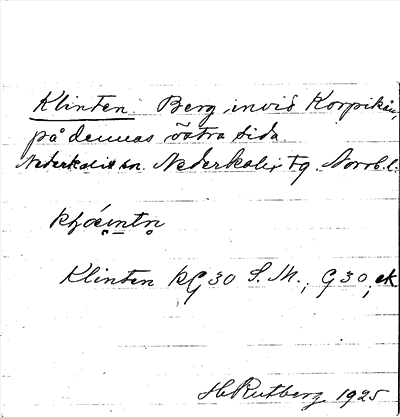 Klinten. Berg invid Korpikån,
på dennas östra sida.
Nederkalix sn. Nederkalix tg. Norrb. l.
Klinten KG 30 S. M., G 30, ek.
H Rutberg 1925